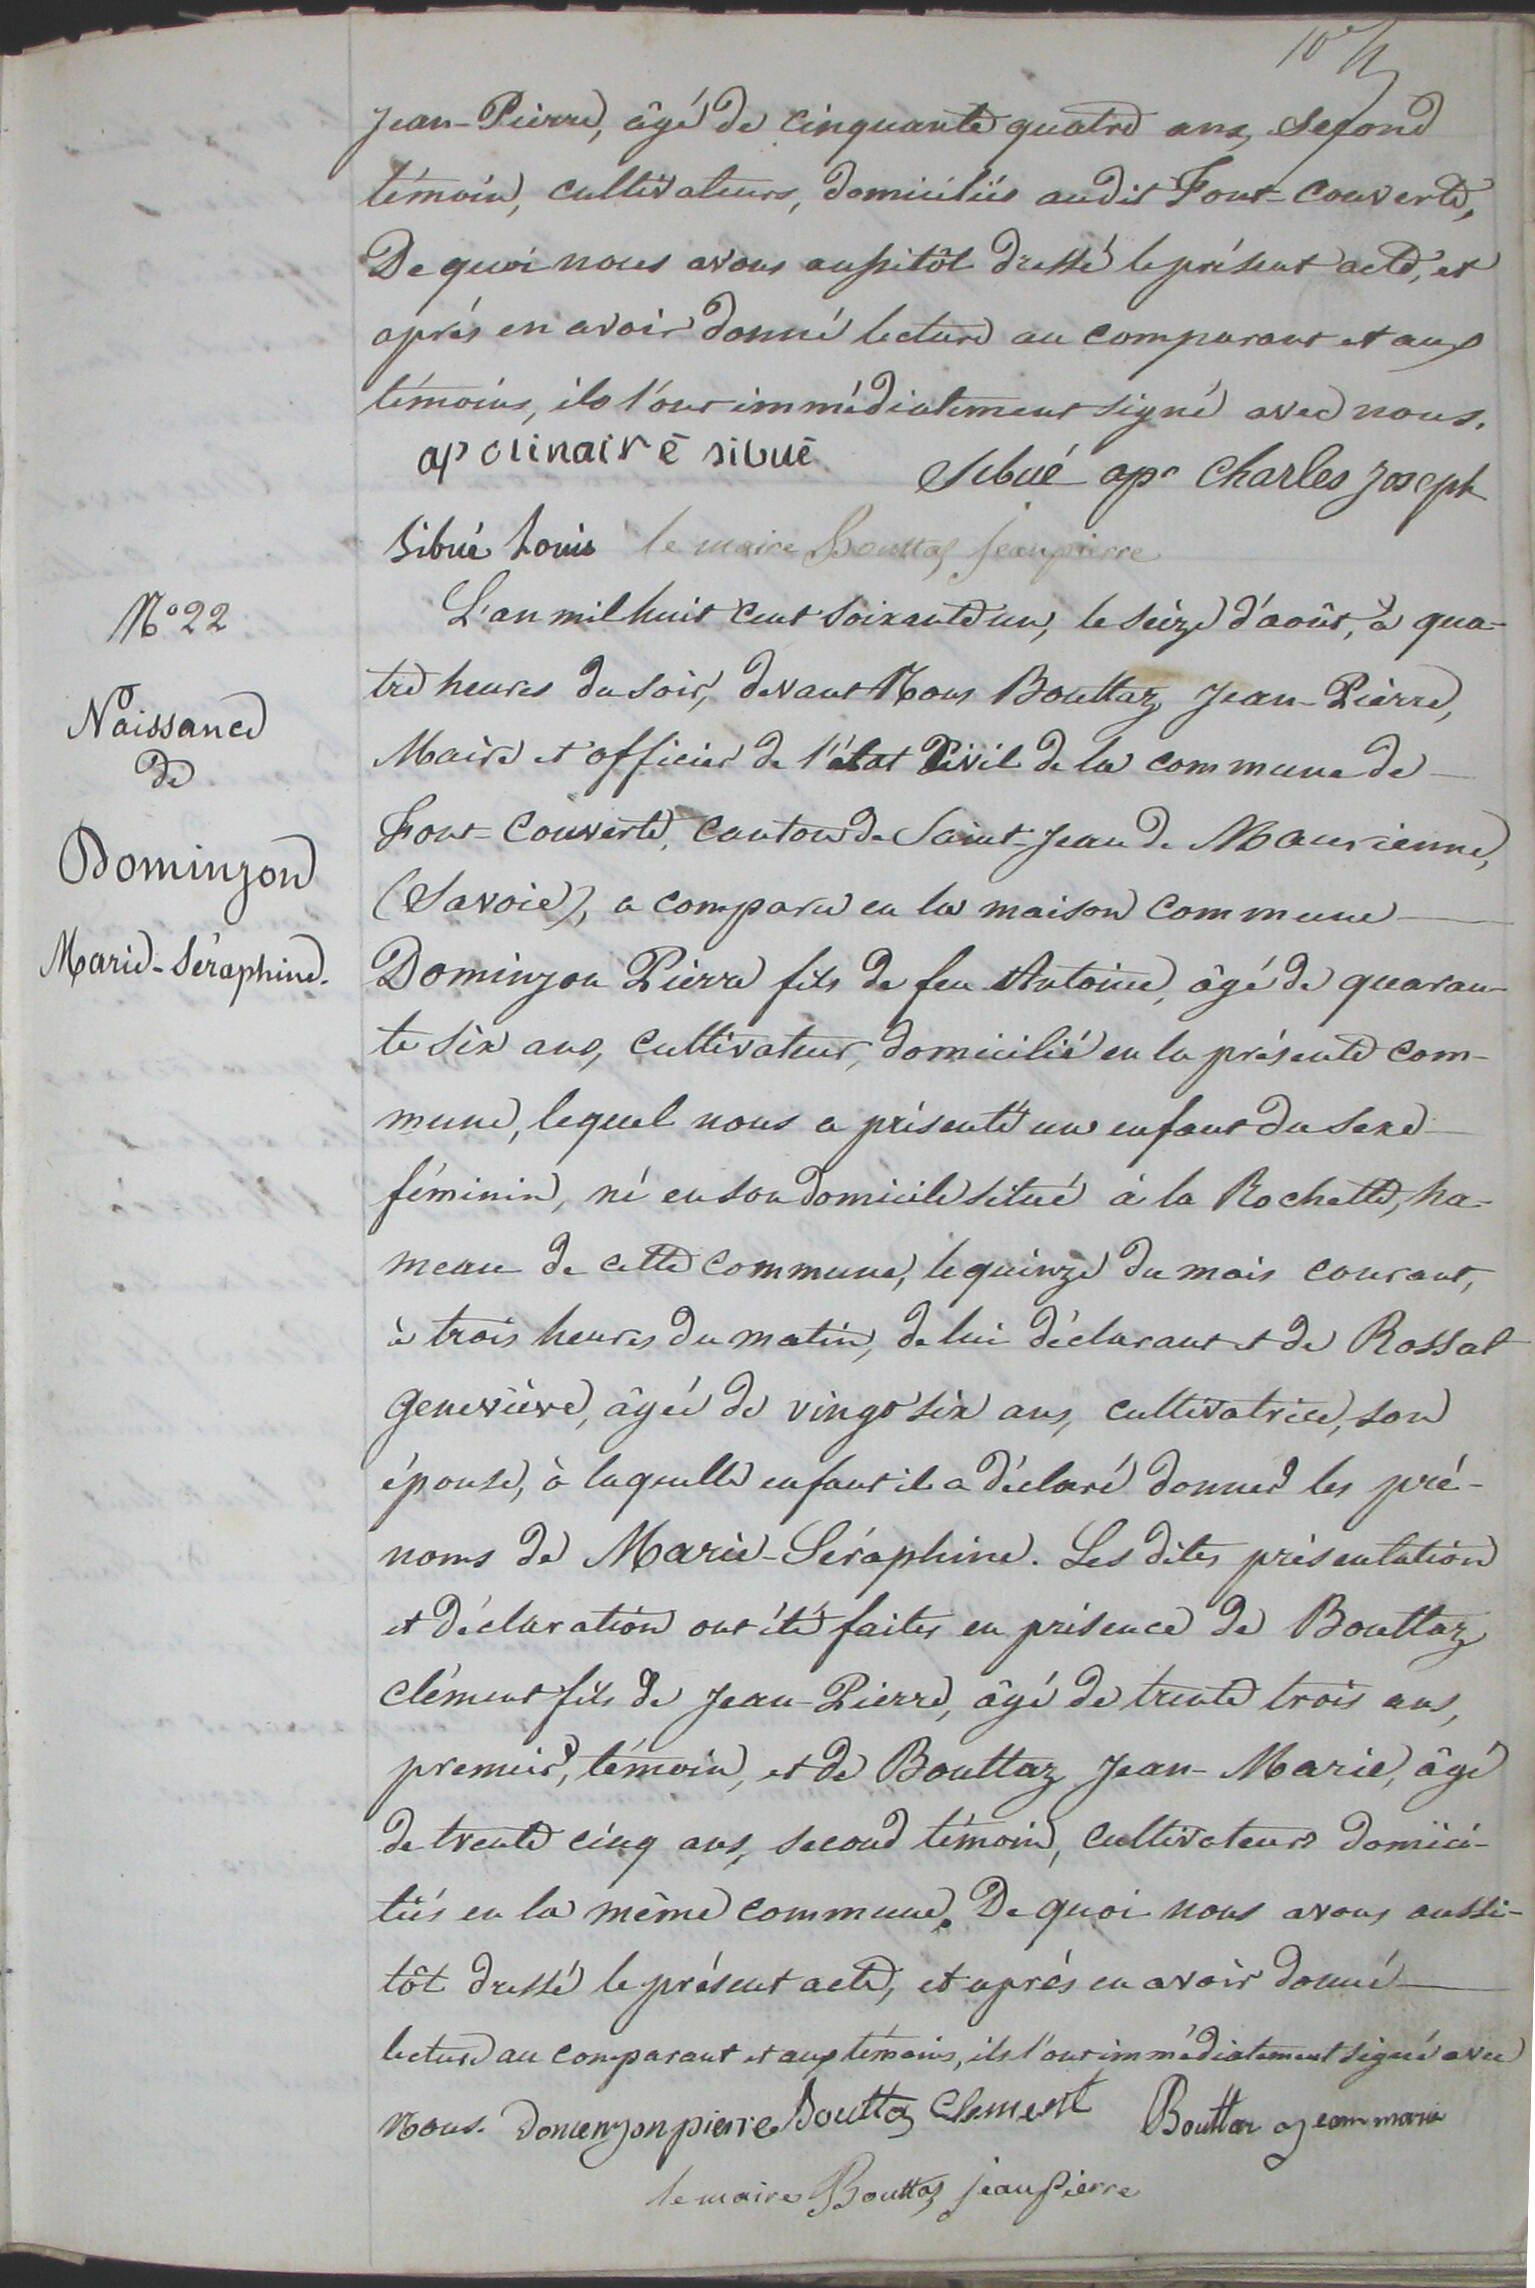 10
Jean-Pierre, âgé de cinquante quatre ans, second
témoin, cultivateurs, domiciliés audit Font-Couverte,
De quoi nous avons aussitôt dressé le présent acte, et
après en avoir donné lecture au comparant et aux
témoins, ils l'ont immédiatement signé avec nous.
apolinaire sibué Sibué apr Charles Joseph
Sibué Louis le maire Bouttaz jeanpierre
N° 22
Naissance
de
Dominjon
Marie-Séraphine.
L'an mil huit cent soixante un, le seize d'août, à qua-
tre heures du soir, devant Nous Bouttaz Jean-Pierre,
Maire et officier de l'état Civil de la commune de
Font-Couverte, canton de Saint-Jean de Maurienne,
(Savoie), a comparu en la maison commune
Dominjon Pierre fils de feu Antoine, âgé de quaran-
te six ans, cultivateur, domicilié en la présente com-
mune, lequel nous a présenté un enfant du sexe
féminin, né en son domicile situé à la Rochette, ha-
meau de cette commune, le quinze du mois courant,
à trois heures du matin, de lui déclarant et de Rossat
Geneviève, âgée de vingt six ans, cultivatrice, son
épouse, à laquelle enfant il a déclaré donner les pré-
noms de Marie-Séraphine. Les dites présentation
et déclaration ont été faites en présence de Bouttaz
Clément fils de Jean-Pierre, âgé de trente trois ans,
premier, témoin, et de Bouttaz Jean-Marie, âgé
de trente cinq ans, second témoin, cultivateurs domici-
liés en la même commune. De quoi nous avons aussi-
tôt dressé le présent acte, et après en avoir donné
lecture au comparant et aux témoins, ils l'ont immédiatement signé avec
Nous. Domenjon pierre Bouttaz Clement Bouttaz jean marie
le maire Bouttaz jean Pierre